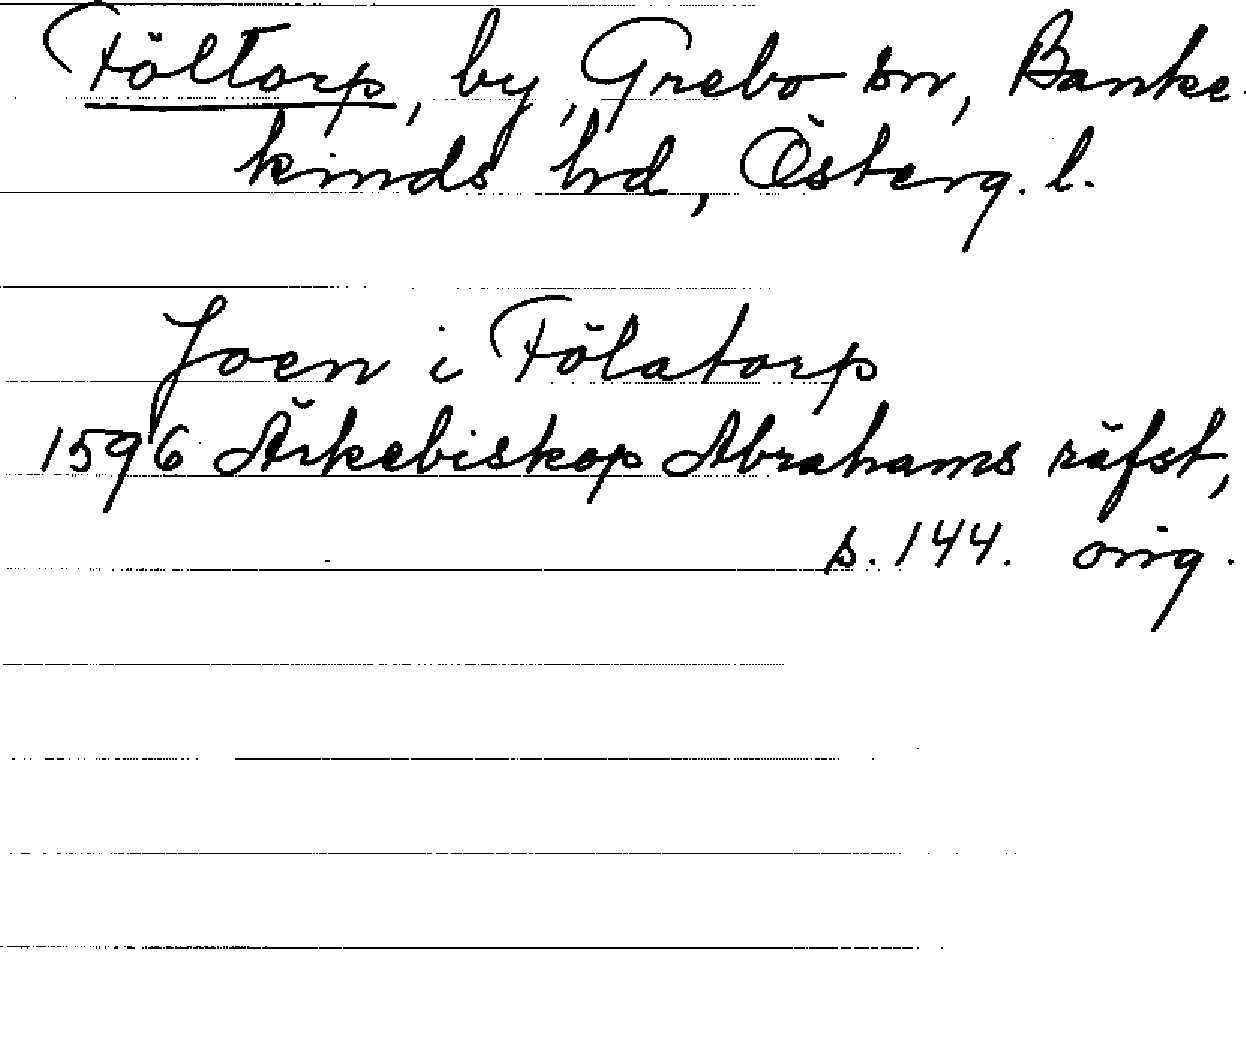 Föltorp, by, Grebo sn, Banke-
kinds hd, Österg. l.
Joen i Fölatorp
1596 Ärkebiskop Abrahams räfst,
s. 144. orig.